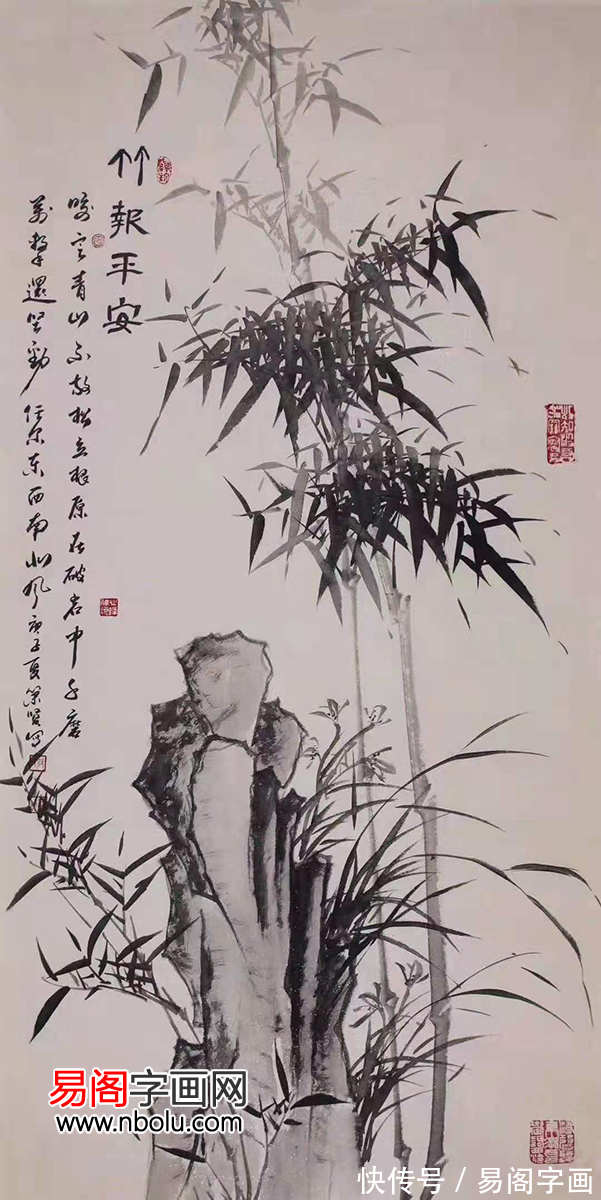 竹報平安
咬定青山不放松立根原在破岩中千磨
萬擊還坚劲任尔东西南北风庚子夏荣贤写
易阁字画网
www.nbolu.com
快传号 / 易阁字画